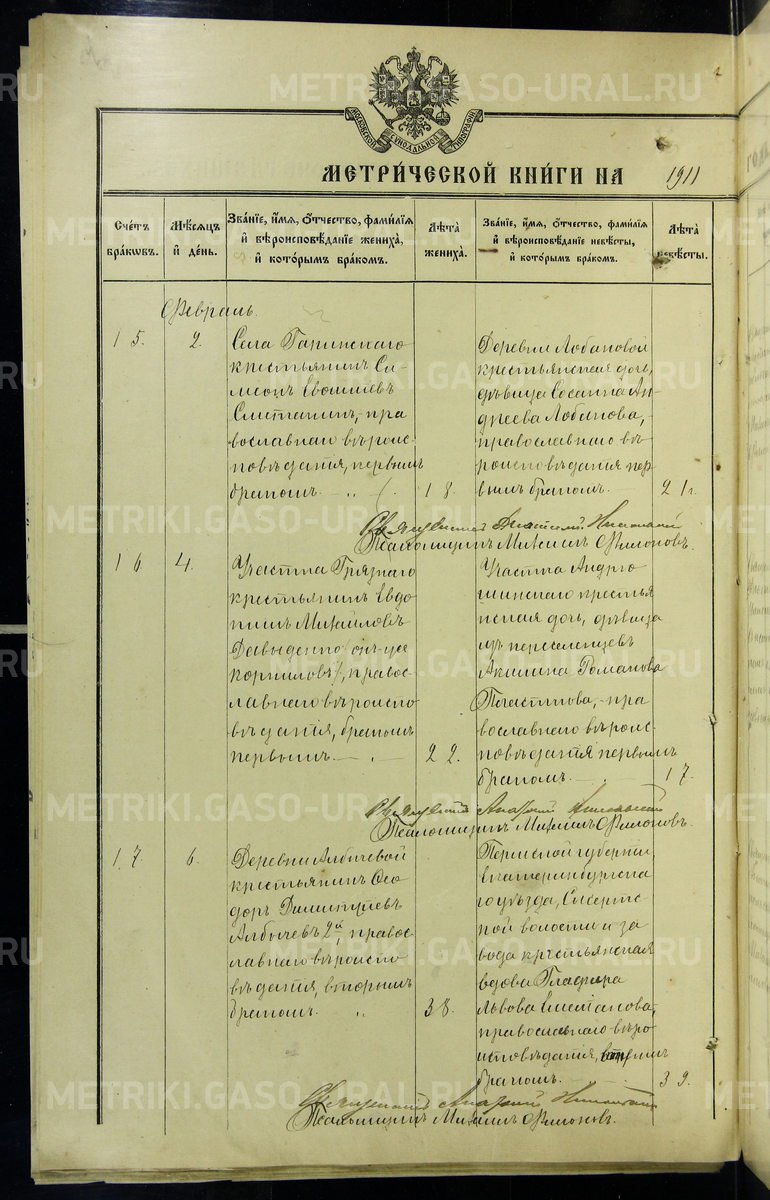 МОСКОВСКОЙ СѴНОДАЛЬНОЙ ТИПОГРАФІИ
МЕТРИ́ЧЕСКОЙ КНИ́ГИ НА 1911
Сче́тъ бра́кωвъ.
Мѣ́сяцъ и҆ де́нь.
Зва́нїе, и҆́мѧ, ѻ҆́тчество, фамилїѧ и҆ вѣроисповѣ́данїе жениха̀, и҆ кото́рымъ бра́комъ.
Лѣ́та жениха̀.
Зва́нїе, и҆́мѧ, ѻ҆́тчество, фамилїѧ и҆ вѣроисповѣ́данїе невѣ́сты, и҆ кото́рымъ бра́комъ.
Лѣ́та невѣ́сты.
Февраль.
15.
2.
Села Гаринскаго
крестьянинъ Си-
меонъ Евѳиміевъ
Сметанинъ, пра
вославнаго вѣроис-
повѣданія, первымъ
бракомъ.
18.
Деревни Лобановой
крестьянская дочь,
дѣвица Сосанна Ан-
дреева Лобанова,
православнаго вѣ
роисповѣданія пер
вымъ бракомъ.
21.
Священникъ Анатолій Никольскій
Псаломщикъ Михаилъ Филоновъ.
16
4.
Участка Грязнаго
крестьянинъ Евдо
кимъ Михайловъ
Давыденко (онъ-же
Корниловъ), правос
лавнаго вѣроиспо
вѣданія, бракомъ
первымъ.
22.
Участка Андрю
шинскаго крестья
нская дочь, дѣвица
изъ переселенцевъ
Акилина Романова
пра
вославнаго вѣроис-
повѣданія первымъ
бракомъ.
17.
Священникъ Анатолій Никольскій
Псаломщикъ Михаилъ Филоновъ.
17.
6.
Деревни Албычевой
крестьянинъ Ѳео
доръ Димитріевъ
Албычевъ 2й, правос
лавнаго вѣроиспо
вѣданія, вторымъ
бракомъ.
38.
Пермской губерніи
Екатеринбургска
го уѣзда, Сысертс
кой волости и за
вода крестьянская
вдова Глафира
Львова
православнаго вѣро
исповѣданія, вторымъ
бракомъ.
39.
Священникъ Анатолій Никольскій
Псаломщикъ Михаилъ Филоновъ.
METRIKI.GASO-URAL.RU